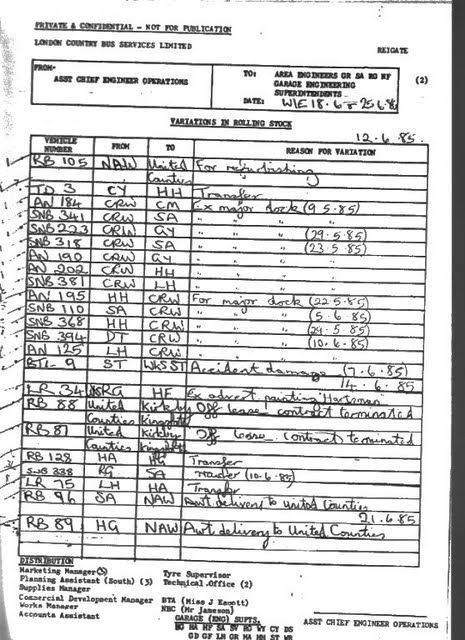 PRIVATE & CONFIDENTIAL - NOT FOR PUBLICATION
LONDON COUNTRY BUS SERVICES LIMITED
REIGATE
FROM- ASST CHIEF ENGINEER OPERATIONS
TO: AREA ENGINEERS GR SA RG HF
GARAGE ENGINEERING
SUPERINTENDENTS
(2)
DATE: W/E 18.6 - 25.6.85
VARIATIONS IN ROLLING STOCK
12.6.85.
VEHICLE NUMBER FROM TO REASON FOR VARIATION
RB 105 NAW United Counties For refurbishing
TD 3 CY HH Transfer
AN 184 CRW CM Ex major dock (9.5.85)
SNB 341 CRW SA " " "
SNB 223 CRW GY " " " (29.5.85)
SNB 318 CRW SA " " " (23.5.85)
AN 190 CRW GY " " "
AN 202 CRW HH " " "
SNB 381 CRW LH " " "
AN 195 HH CRW For major dock (22.5.85)
SNB 110 SA CRW " " " (5.6.85)
SNB 368 HH CRW " " " (29.5.85)
SNB 394 DT CRW " " " (10.6.85)
AN 125 LH CRW " " "
BTL 9 ST WKSST Accident damage (7.6.85)
14.6.85
LR 34 RG HF Ex advert painting
RB 88 United Counties Kirkby Off lease contract terminated
RB 81 United Counties Kirkby Off lease contract terminated
RB 128 HA HG Transfer
SNB 338 RG SA Transfer (10.6.85)
LR 75 LH HA Transfer
RB 96 SA NAW Awt delivery to United Counties
21.6.85
RB 89 HG NAW Awt delivery to United Counties
DISTRIBUTION
Marketing Manager Tyre Supervisor
Planning Assistant (South) (3) Technical Office (2)
Supplies Manager
Commercial Development Manager BTA (Miss J Escott)
Works Manager NBC (Mr Jameson)
Accounts Assistant GARAGE (ENG) SUPTS.
HG HA HF SA SV RG WY CY DS
GD GF LH GR MA HH ST WR
ASST CHIEF ENGINEER OPERATIONS